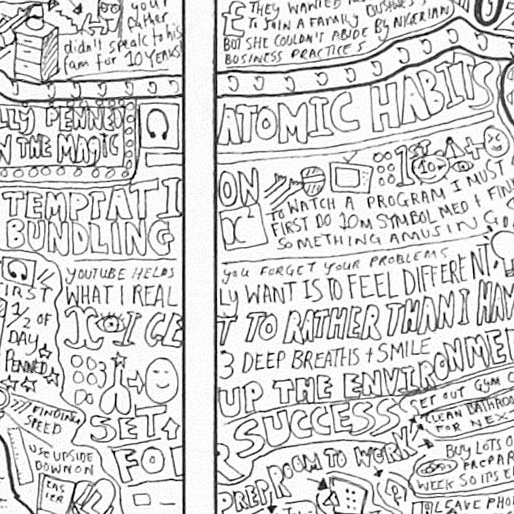 your
father
didn't speak to his
fam for 10 YEARS
LLY PENNED
N THE MAGIC
TEMPTATI
BUNDLING
YOUTUBE HELPS
WHAT I REAL
FIRST
1/2 OF
DAY
PENNED
FINDING
SPEED
USE UPSIDE
DOWN ON
SET
FO
£ THEY WANTED
TO JOIN A FAMILY BUSINESS
BUT SHE COULDN'T ABIDE BY NIGERIAN
BUSINESS PRACTICES
ATOMIC HABITS
ON
x²
1ST
10m
TO WATCH A PROGRAM I MUST
FIRST DO 10M SYMBOL MED + FIN
SOMETHING AMUSING
you FORGET YOUR PROBLEMS
LY WANT IS TO FEEL DIFFERENT.
T TO RATHER THAN I HAV
3 DEEP BREATHS + SMILE
UP THE ENVIRONMEN
SET OUT GYM
SUCCESS
CLEAN BATHROO
FOR NEX
R
PREP ROOM TO WORK
BUY LOTS O
PREPAR
WEEK SO ITS E
SAVE PHO